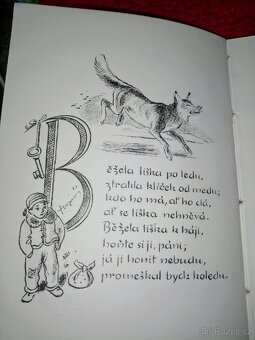 Běžela liška po ledu,
ztratila klíček od medu;
kdo ho má, ať ho dá,
ať se liška nehněvá.
Běžela liška k háji,
hoňte si ji, páni;
já ji honit nebudu,
promeškal bych koledu.
© Bazos.cz